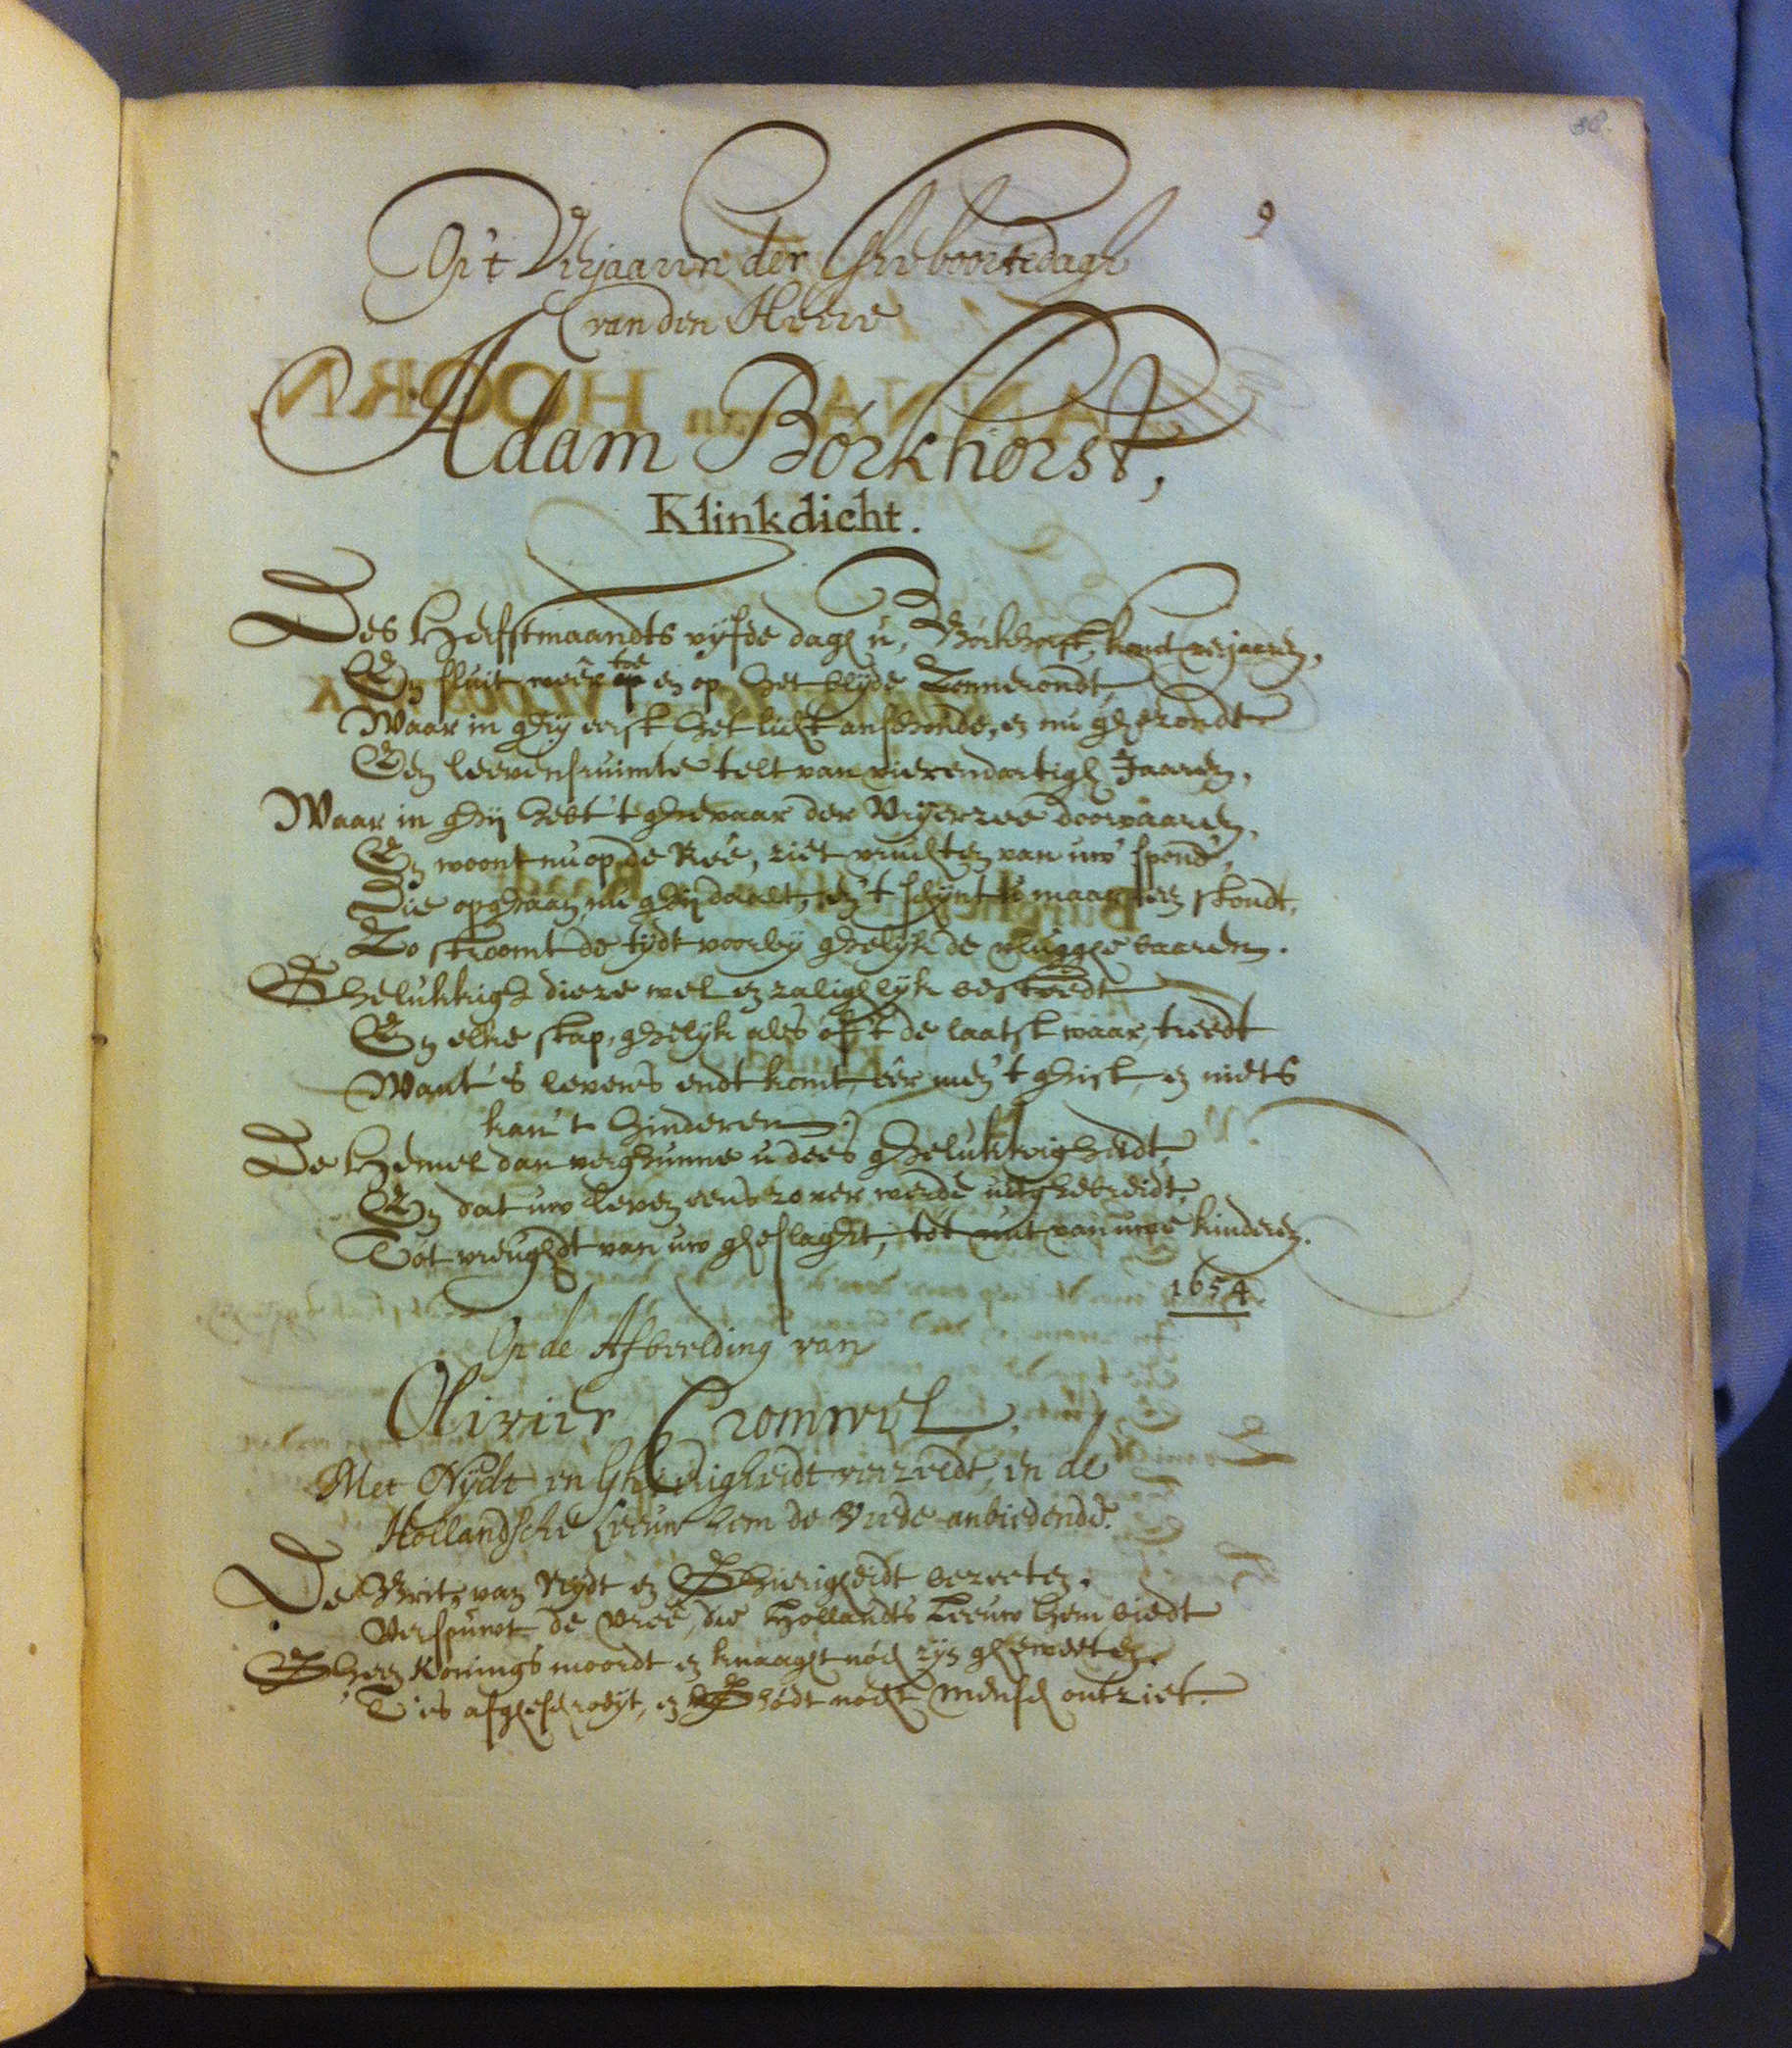 38.
9
Op 't Verjaaren der Gheboortedagh
van den Heere
Adam Börkhorst,
Klinkdicht.
Des Herfstmaandts vyfde dagh u, Börkhorst, komt verjaaren,
En sluit weêr toe en op het blyde Zonnerondt,
Waar in ghy eerst het licht anschoude, en nu ghezondt
Een leevensruimte telt van vierendartigh Jaaren,
Waar in ghy hebt 't ghevaar der Vryerzee doorvaaren,
En woont nu op de Reê, ziet vruchten van uw' spond',
Die opghaan, nu ghy daalt, en 't schynt u maar een stondt,
Zo stroomt de tydt voorby ghelyk de vlugghe baaren.
Ghelukkigh die ze wel en zalighlyk besteedt
En elke stap, ghelyk als of 't de laatst waar, treedt
Want 's levens endt komt eêr men 't ghist, en niets
kan 't hinderen.
De Hemel dan verghunne u dees ghelukkigheidt,
En dat uw leven eens zo ver werde uitghebreidt,
Tot vreughdt van uw gheslaght, tot nut van uwe kinderen.
1654.
Op de Afbeelding van
Olivier Cromwel,
Met Nydt en Ghierigheidt verzeldt, en de
Hollandsche Leeuw hem de Vrede anbiedende.
De Brit, van Nydt en Ghierigheidt bezeeten,
Verspuwt de vreê, die Hollandts Leeuw hem biedt
Gheen Konings moordt en knaaght noch zyn gheweeten.
'T is afgheschrobt, en Ghodt noch Mensch ontziet.